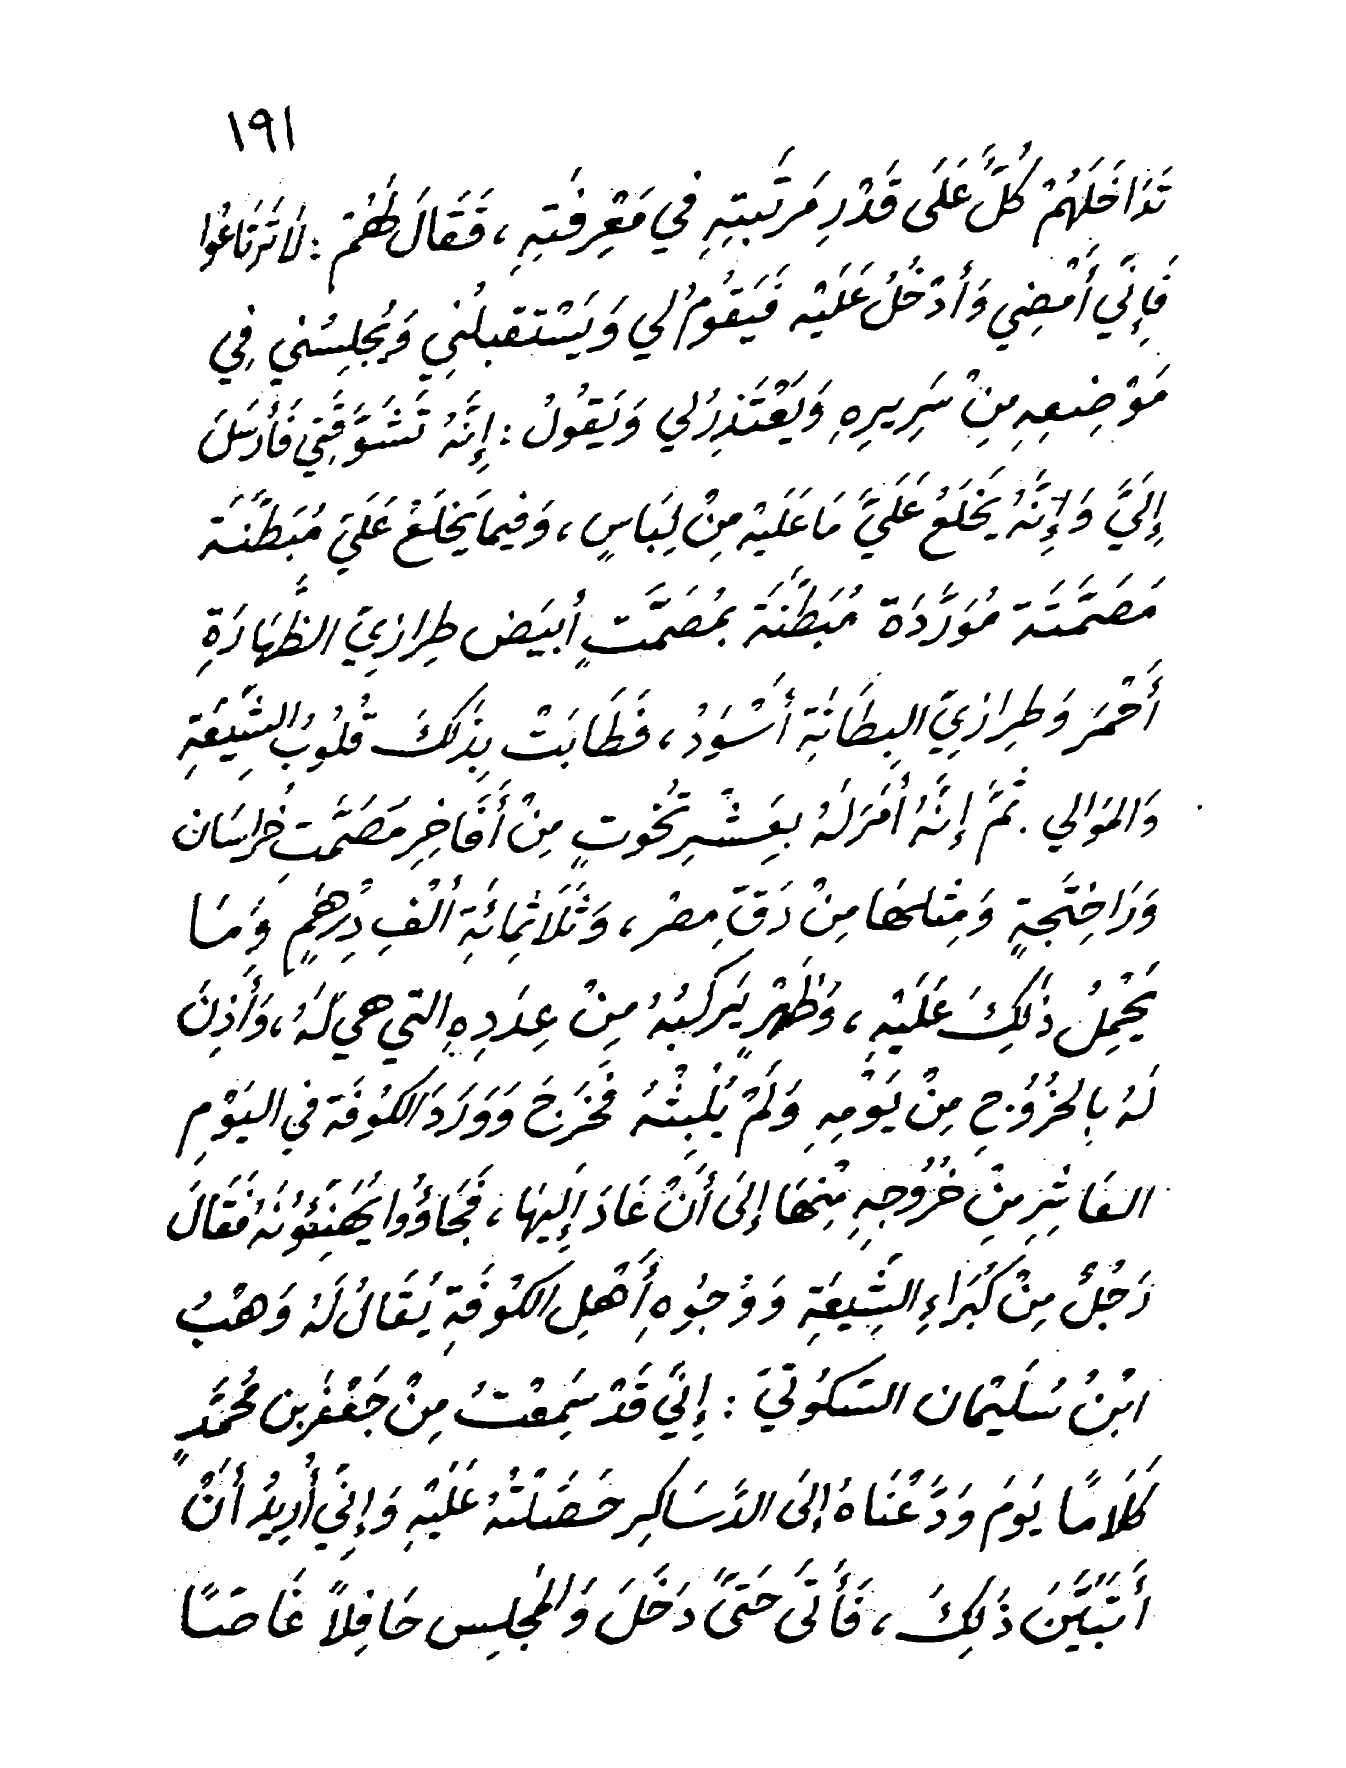 ١٩١
تَدَاخَلَهُمْ كُلٌّ عَلَى قَدْرِ مَرْتَبَتِهِ فِي مَعْرِفَتِهِ ، فَقَالَ لَهُمْ : لَا تَرْتَاعُوا
فَإِنِّي أَمْضِي وَأَدْخُلُ عَلَيْهِ فَيَقُومُ لِي وَيَسْتَقْبِلُنِي وَيُجْلِسُنِي فِي
مَوْضِعِهِ مِنْ سَرِيرِهِ وَيَعْتَذِرُ لِي وَيَقُولُ : إِنَّهُ تَشَوَّقَنِي فَأَرْسَلَ
إِلَيَّ وَإِنَّهُ يَخْلَعُ عَلَيَّ مَا عَلَيْهِ مِنْ لِبَاسٍ ، وَفِيمَا يَخْلَعُ عَلَيَّ مُبَطَّنَة
مَصَمَّتَة مُوَرَّدَة مُبَطَّنَة بِمُصَمَّتٍ أَبْيَض طِرَازِيِّ الظِّهَارَةِ
أَحْمَر وَطِرَازِيِّ البِطَانَةِ أَسْوَدُ ، فَطَابَتْ بِذَلِكَ قُلُوبُ الشِّيعَةِ
وَالمَوَالِي . ثُمَّ إِنَّهُ أَمَرَ لَهُ بِعَشْرِ تُخُوتٍ مِنْ أَفَاخِرِ مَصَمَّتِ خُرَاسَان
وَرَاخِتَجةٍ وَمِثْلِهَا مِنْ دَقِّ مِصْر ، وَثَلَاثِمِائَةِ أَلْفِ دِرْهَمٍ وَمَا
يَحْمِلُ ذَلِكَ عَلَيْهِ ، وَظَهْرٍ يَرْكَبُهُ مِنْ عِدَدِهِ التي هي لَهُ ، وَأَذِنَ
لَهُ بِالخُرُوجِ مِنْ يَوْمِهِ وَلَمْ يُلْبِثْهُ فَخَرَجَ وَوَرَدَ الكُوفَة فِي اليَوْمِ
العَاشِرِ مِنْ خُرُوجِهِ مِنْهَا إِلَى أَنْ عَادَ إِلَيْهَا ، فَجَاؤُوا يُهَنِّئُونَهُ فَقَالَ
رَجُلٌ مِنْ كُبَرَاءِ الشِّيعَةِ وَوُجُوهِ أَهْلِ الكُوفَةِ يُقَالُ لَهُ وَهْبُ
ابْنُ سُلَيْمَان السَّكُوتيّ : إِنِّي قَدْ سَمِعْتُ مِنْ جَعْفَرِ بن مُحَمَّدٍ
كَلَامًا يَوْمَ وَدَّعْنَاهُ إِلَى الدَّسَاكِرِ حَصَلْتُهُ عَلَيْهِ وَإِنِّي أُرِيدُ أَنْ
أَتَبَيَّنَ ذَلِكَ ، فَأَتَى حَتَّى دَخَلَ وَالمَجْلِس حَافِلاً غَاصًّا